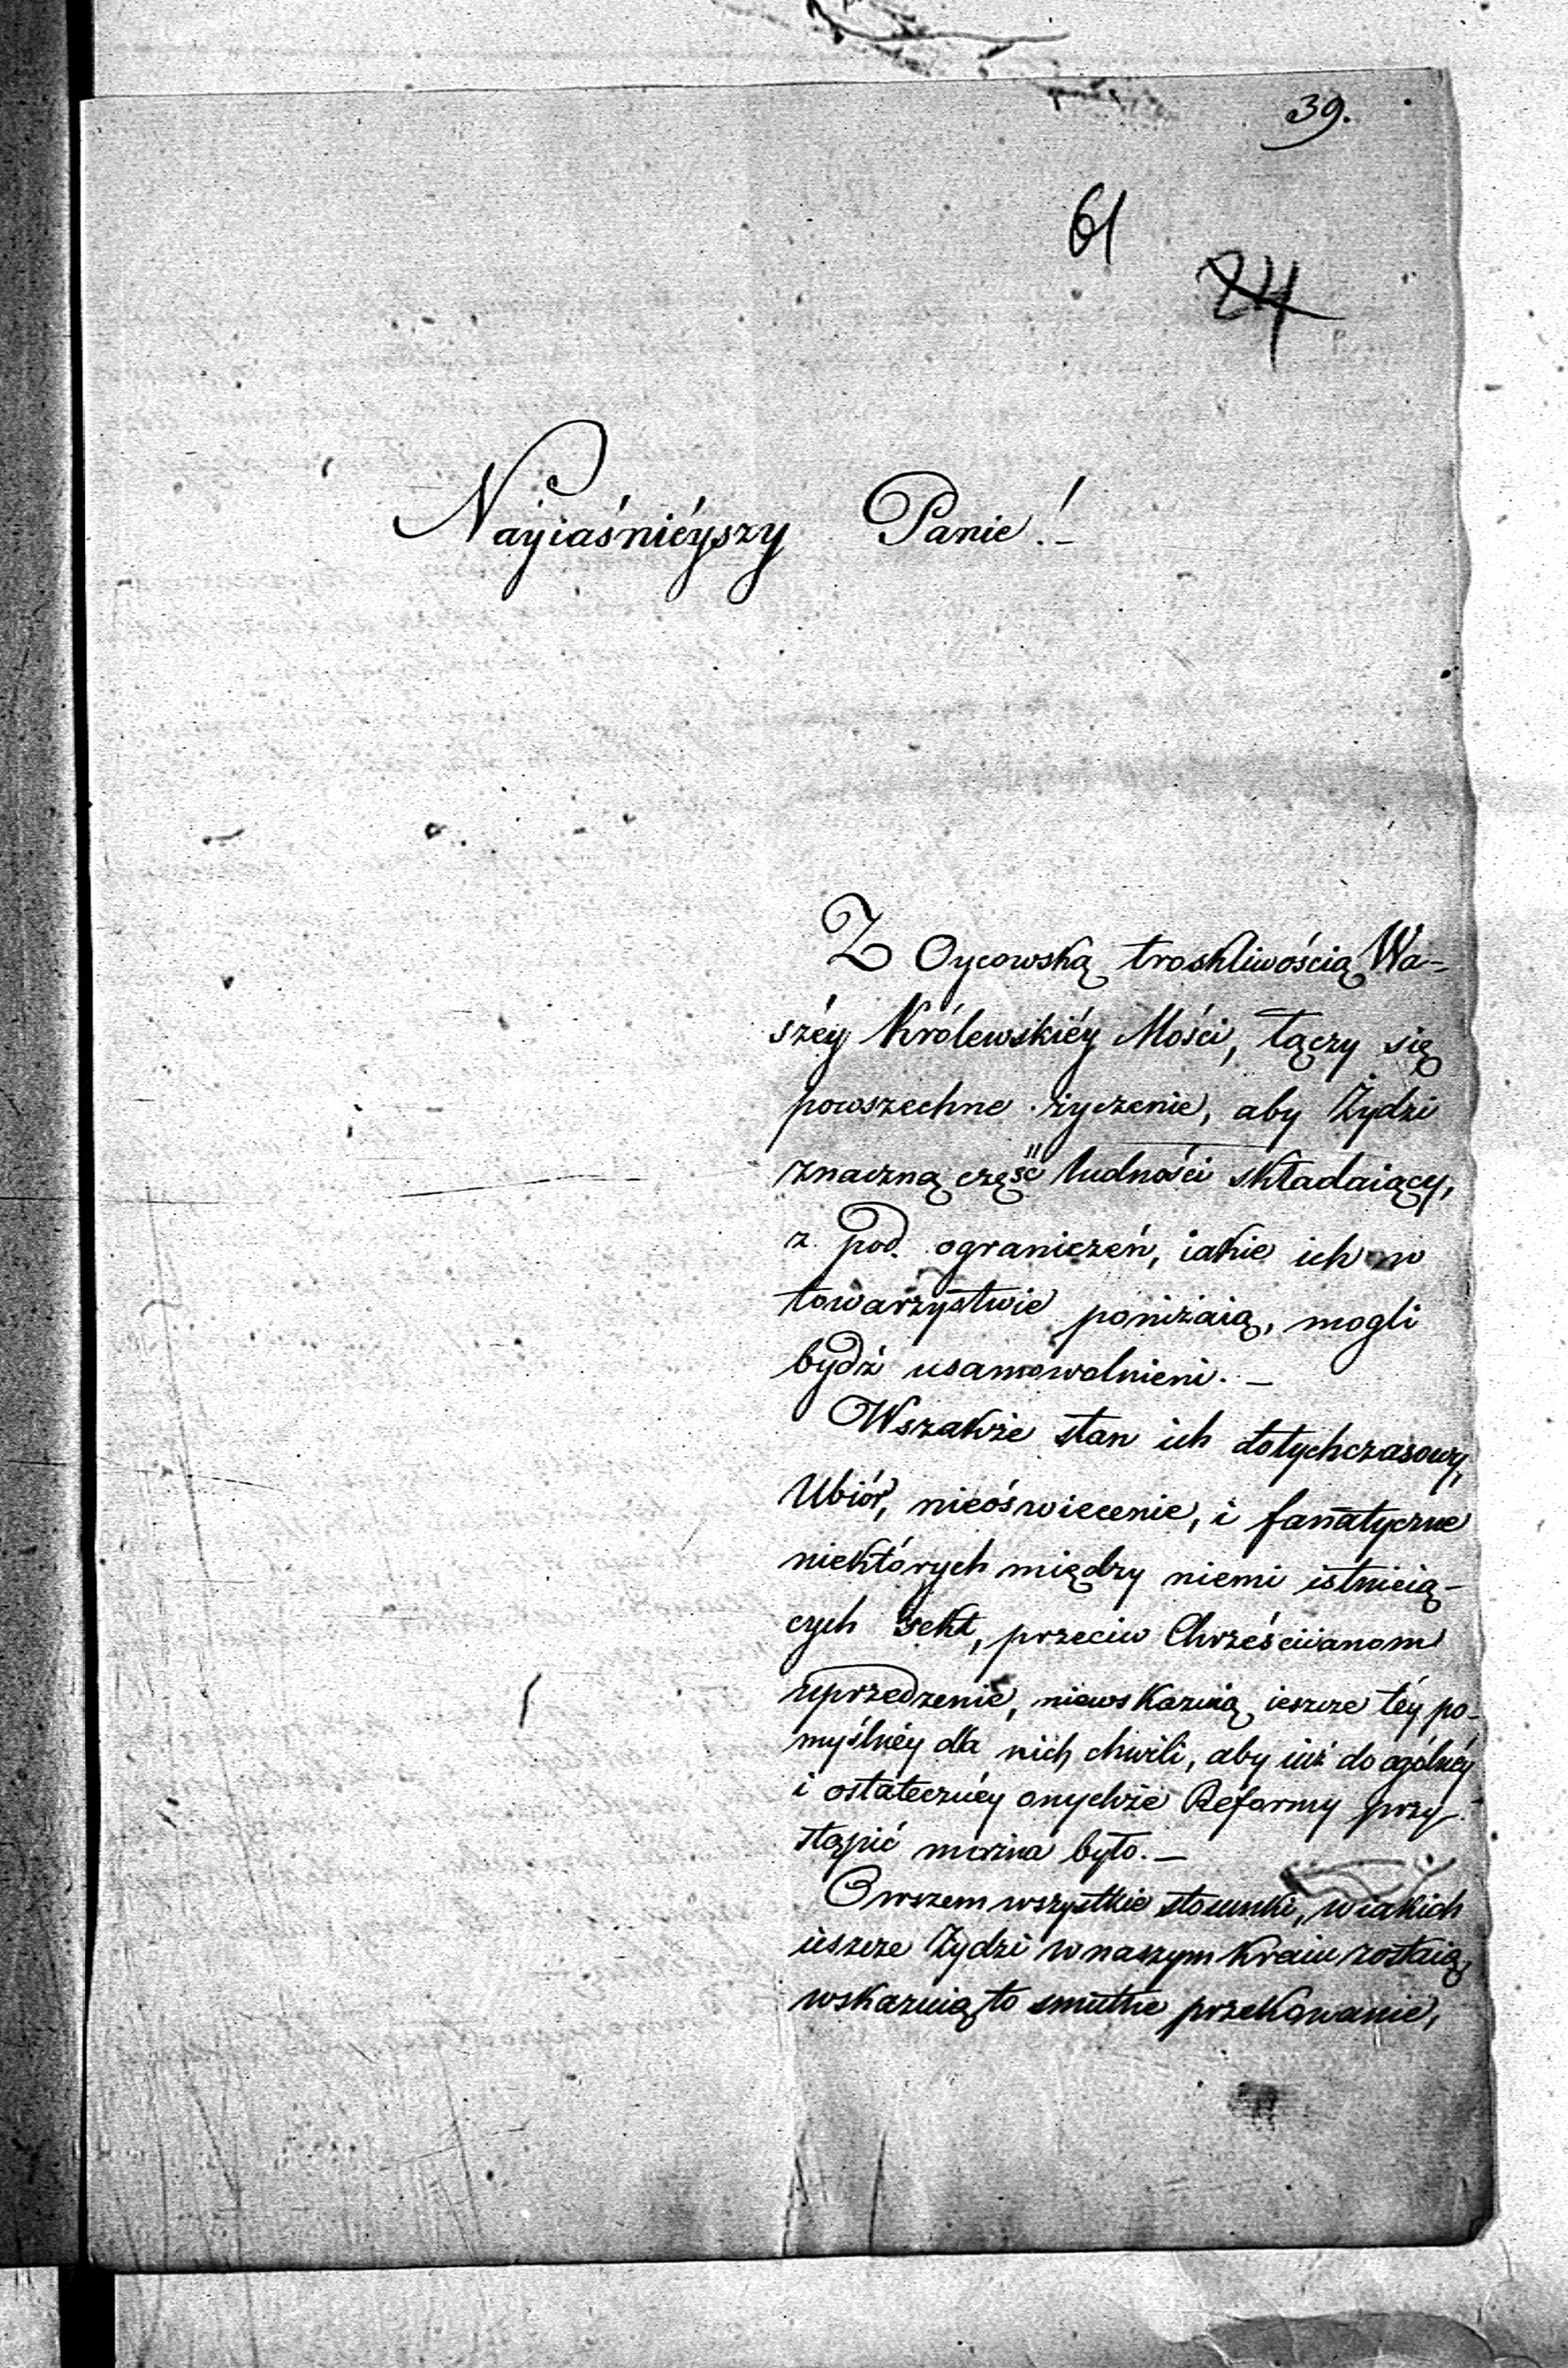 39.
61
24
Nayiaśnieyszy Panie!_
Z Oycowską troskliwością Wa-
széy Królewskiéy Mości, łączy się
powszechne życzenie, aby Żydzi
znaczną część ludności składaiący,
z pod ograniczeń, iakie ich w
towarzystwie poniżaią, mogli
bydź usamowolnieni._
Wszakże stan ich dotychczasowy,
Ubiór, nieoświecenie, i fanatyczne
niektórych między niemi istnieią-
cych sekt, przeciw Chrześciianom
uprzedzenie, niewskazuią ieszcze téy po-
myślnéy dla nich chwili, aby iuż do ogólnéy
i ostatecznéy onychże Reformy przy-
stąpić można było._
Owszem wszystkie stosunki, w iakich
ieszcze Żydzi w naszym Kraiu zostaią,
wskazuią to smutne przekonanie,